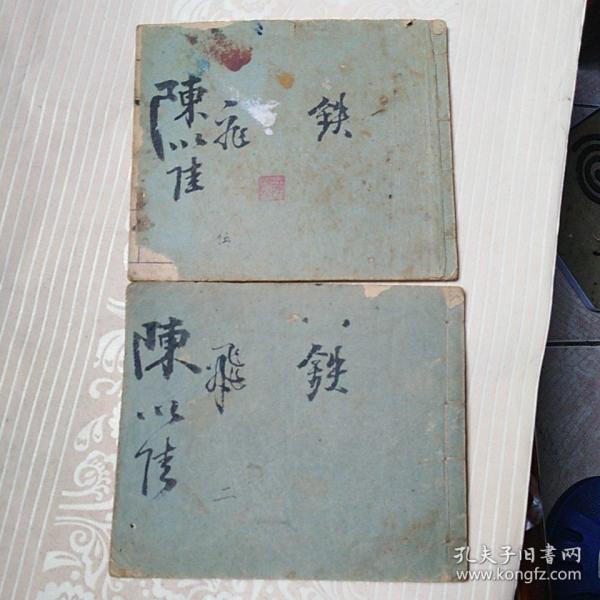 鉄
飛
陳以
伍
鉄
飛
陳以
二
孔夫子旧書网
www.kongfz.com